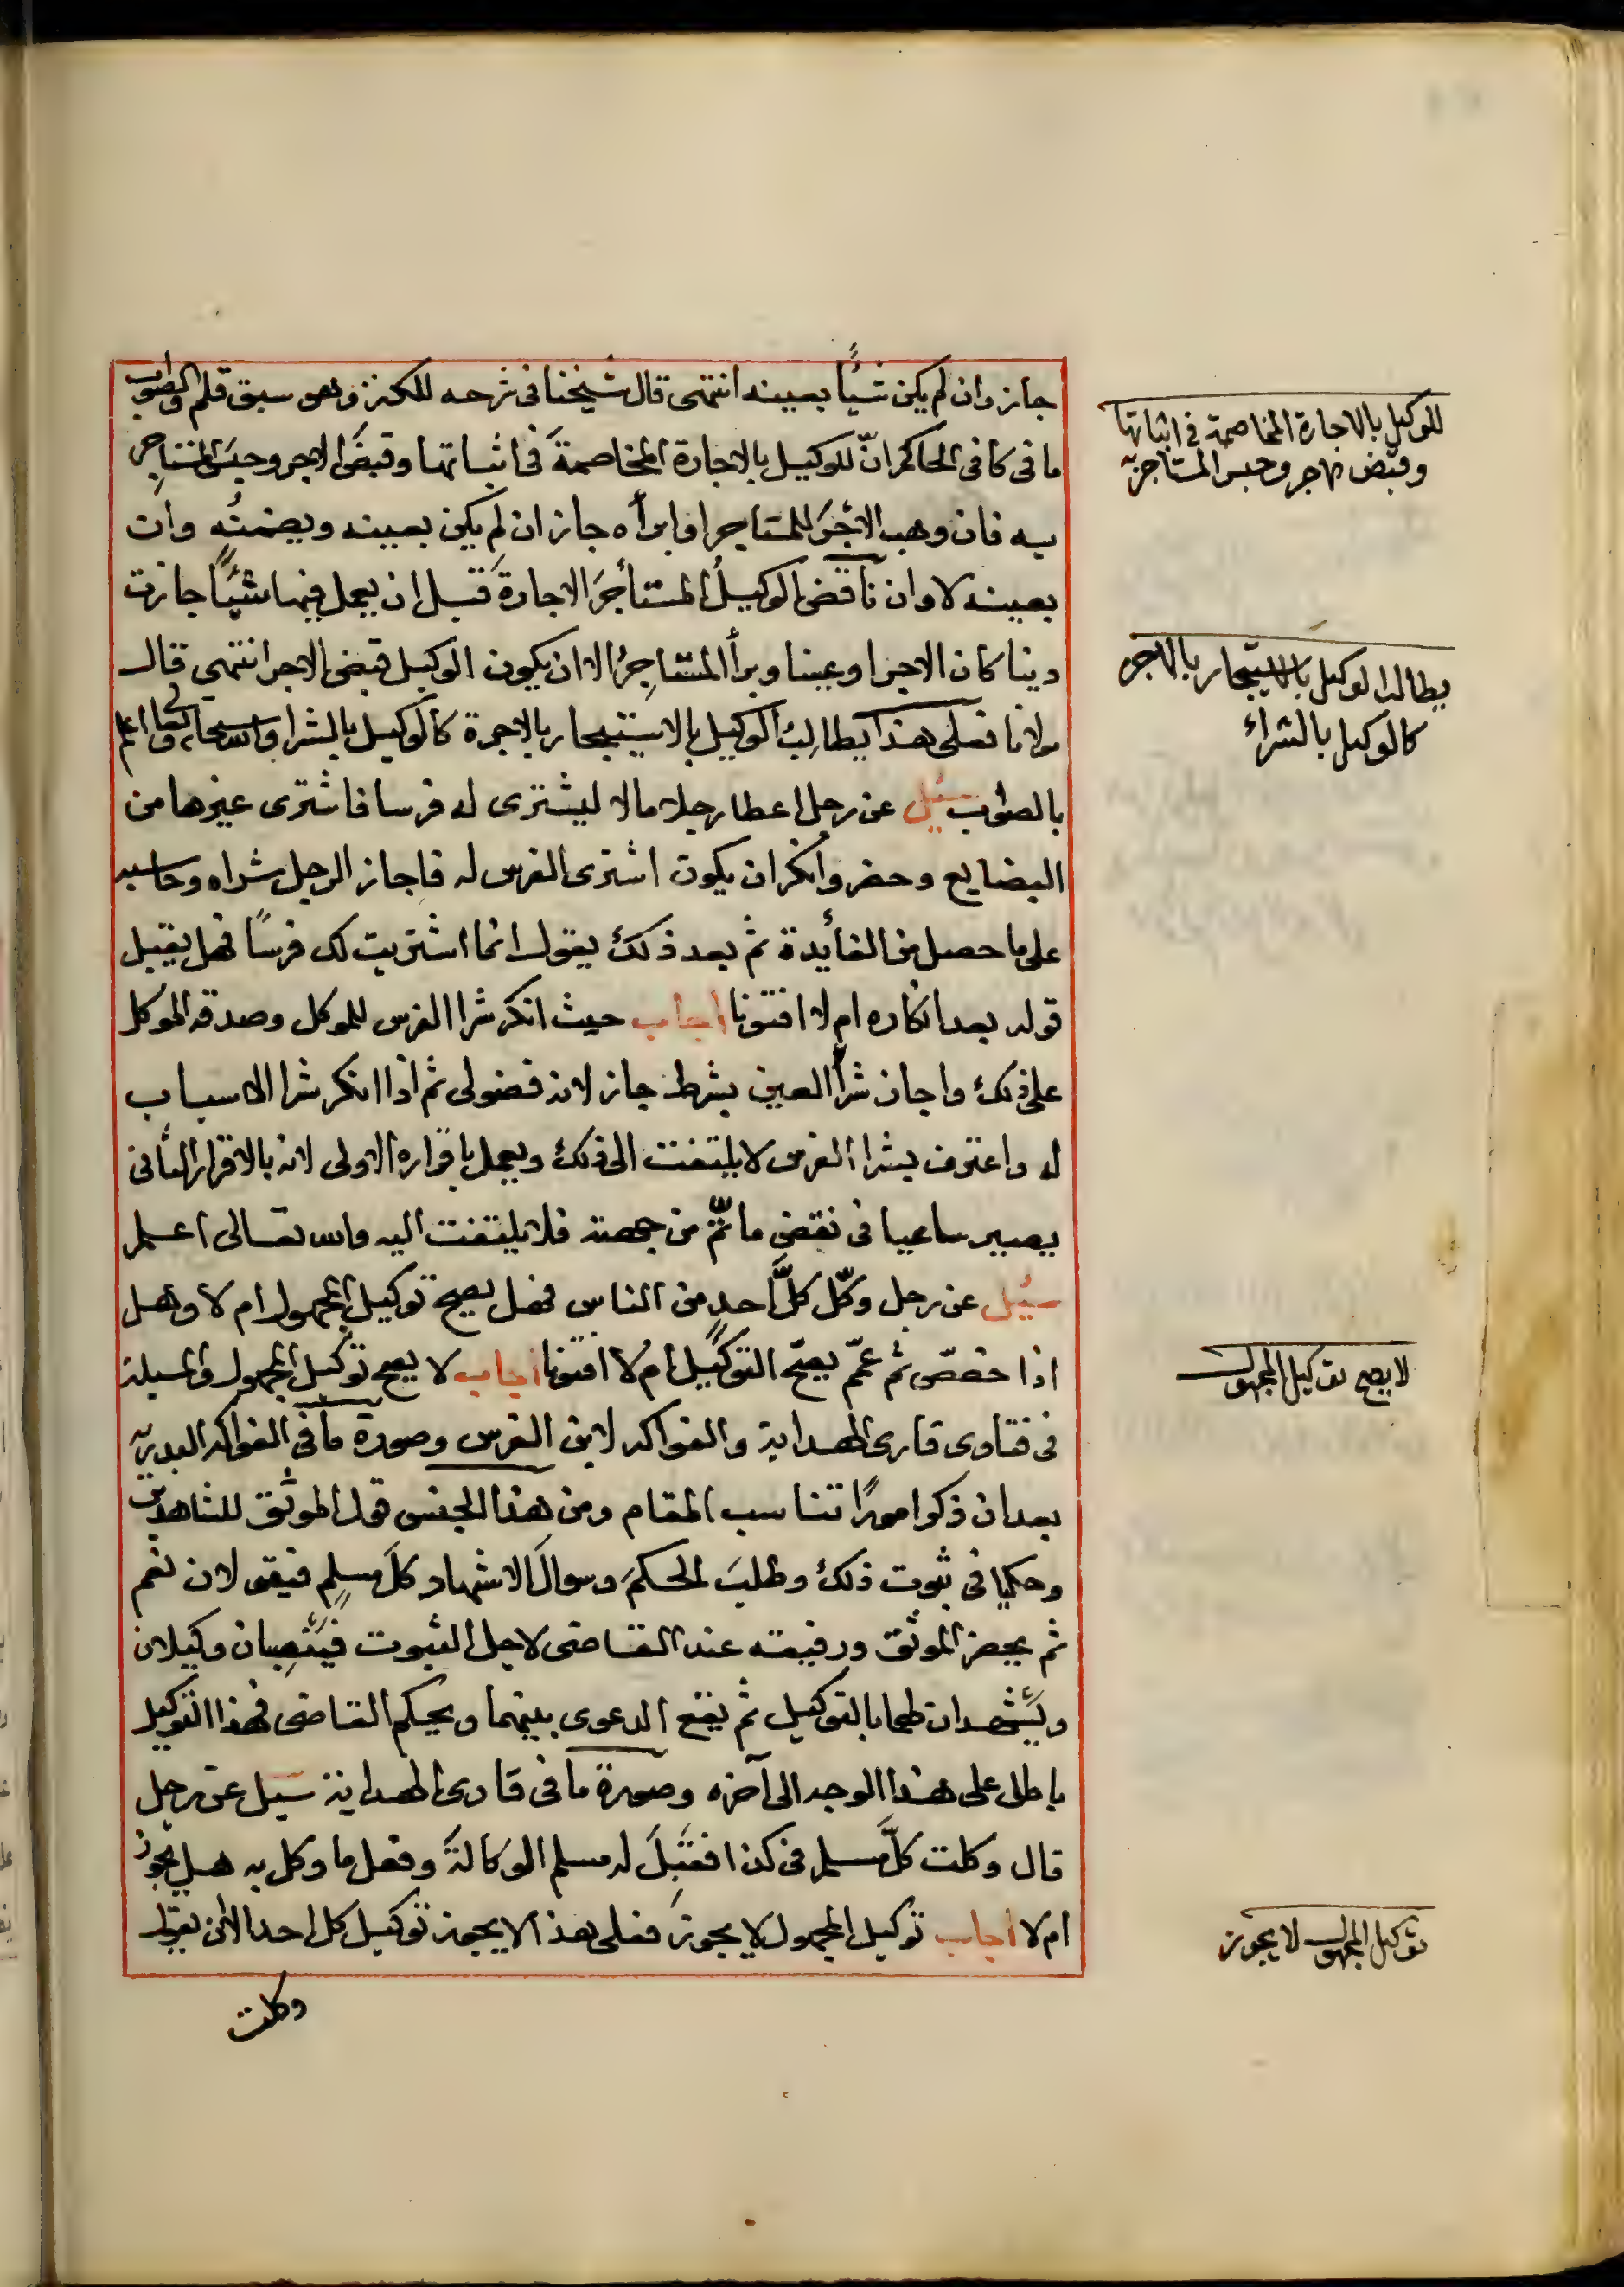 جاز وان لم يكن شيأً بعينه انتهى قال شيخنا فى شرحه للكنز وهو سبق قلم والصواب
ما فى كافى الحاكم انّ للوكيل بالاجارة المخاصمةَ فى اثباتها وقبضَ الاجر وحبسَ المستاجِر
به فان وهب الاجرَ للمستاجر او ابرأه جاز ان لم يكن بعينه ويضمنُه وان
بعينه لا وان ناقض الوكيلُ المستأجرَ الاجارةَ قبل ان يعمل فيها شيئًا جازت
دينا كان الاجر او عينا وبرأ المستاجِرُ الا ان يكون الوكيل قبض الاجر انتهى قال
مولانا فعلى هذا يطالِبُ الوكيل بالاستيجار بالاجرة كالوكيل بالشرا والله سبحانه وتعالى اعلم
بالصواب سُيل عن رجل اعطا رجلا مالا ليشترى له فرسا فاشترى غيرها من
البضايع وحضر وانكر ان يكون اشترى الفرس له فاجاز الرجل شراه وحاسبه
على ما حصل من الفأيدة ثم بعد ذلك يقول انما اشتريت لك فرسًا فهل يقبل
قوله بعد انكاره ام لا افتونا اجاب حيث انكر شرا الفرس للموكل وصدقه الموكل
على ذلك واجاز شرأ العين بشرط جاز لانه فضولى ثم اذا انكر شرا الاسباب
له واعترف بشرا الفرس لا يلتفت الى ذلك ويعمل باقراره الاولى لانه بالاقرار الثانى
يصير ساعيا فى نقض ما تمّ من جهته فلا يلتفت اليه والله تعالى اعلم
سُيل عن رجل وكّل كلَّ احدٍ من الناس فهل يصح توكيل المجهول ام لا وهل
اذا خصّص ثم عمّم يصحّ التوكيل ام لا افتونا اجاب لا يصح توكيل المجهول والمسيلة
فى فتاوى قارى الهداية والفواكه لابن الغرس وصورة ما فى الفواكه البدرية
بعد ان ذكر امورًا تناسب المقام ومن هذا الجنس قول الموثق للشاهدين
وحكما فى ثبوت ذلك وطلبَ الحكمَ وسوالَ الاشهاد كلَ مسلمٍ فيقولان نعم
ثم يحضر الموثق ورفيقه عند القاضى لاجل الثبوت فيَنْصِبان وكيلان
ويَشهدان لهما بالتوكيل ثم يقع الدعوى بينهما ويحكم القاضى فهذا التوكيل
باطل على هذا الوجه الى آخره وصورة ما فى قارى الهداية سيل عن رجل
قال وكلت كلَّ مسلم فى كذا فقبِلَ له مسلم الوكالةَ وفعل ما وكل به هل يجوز
ام لا اجاب توكيل المجهول لا يجوز فعلى هذا لا يجوز توكيل كل احد الا ان يقول
وكلت
للوكيل بالاجارة المخاصمة فى اثباتها
وقبض الاجر وحبس المستاجر به
يطالب الوكيل بالاستيجار بالاجر
كالوكيل بالشراء
لا يصح توكيل المجهول
توكيل المجهول لا يجوز